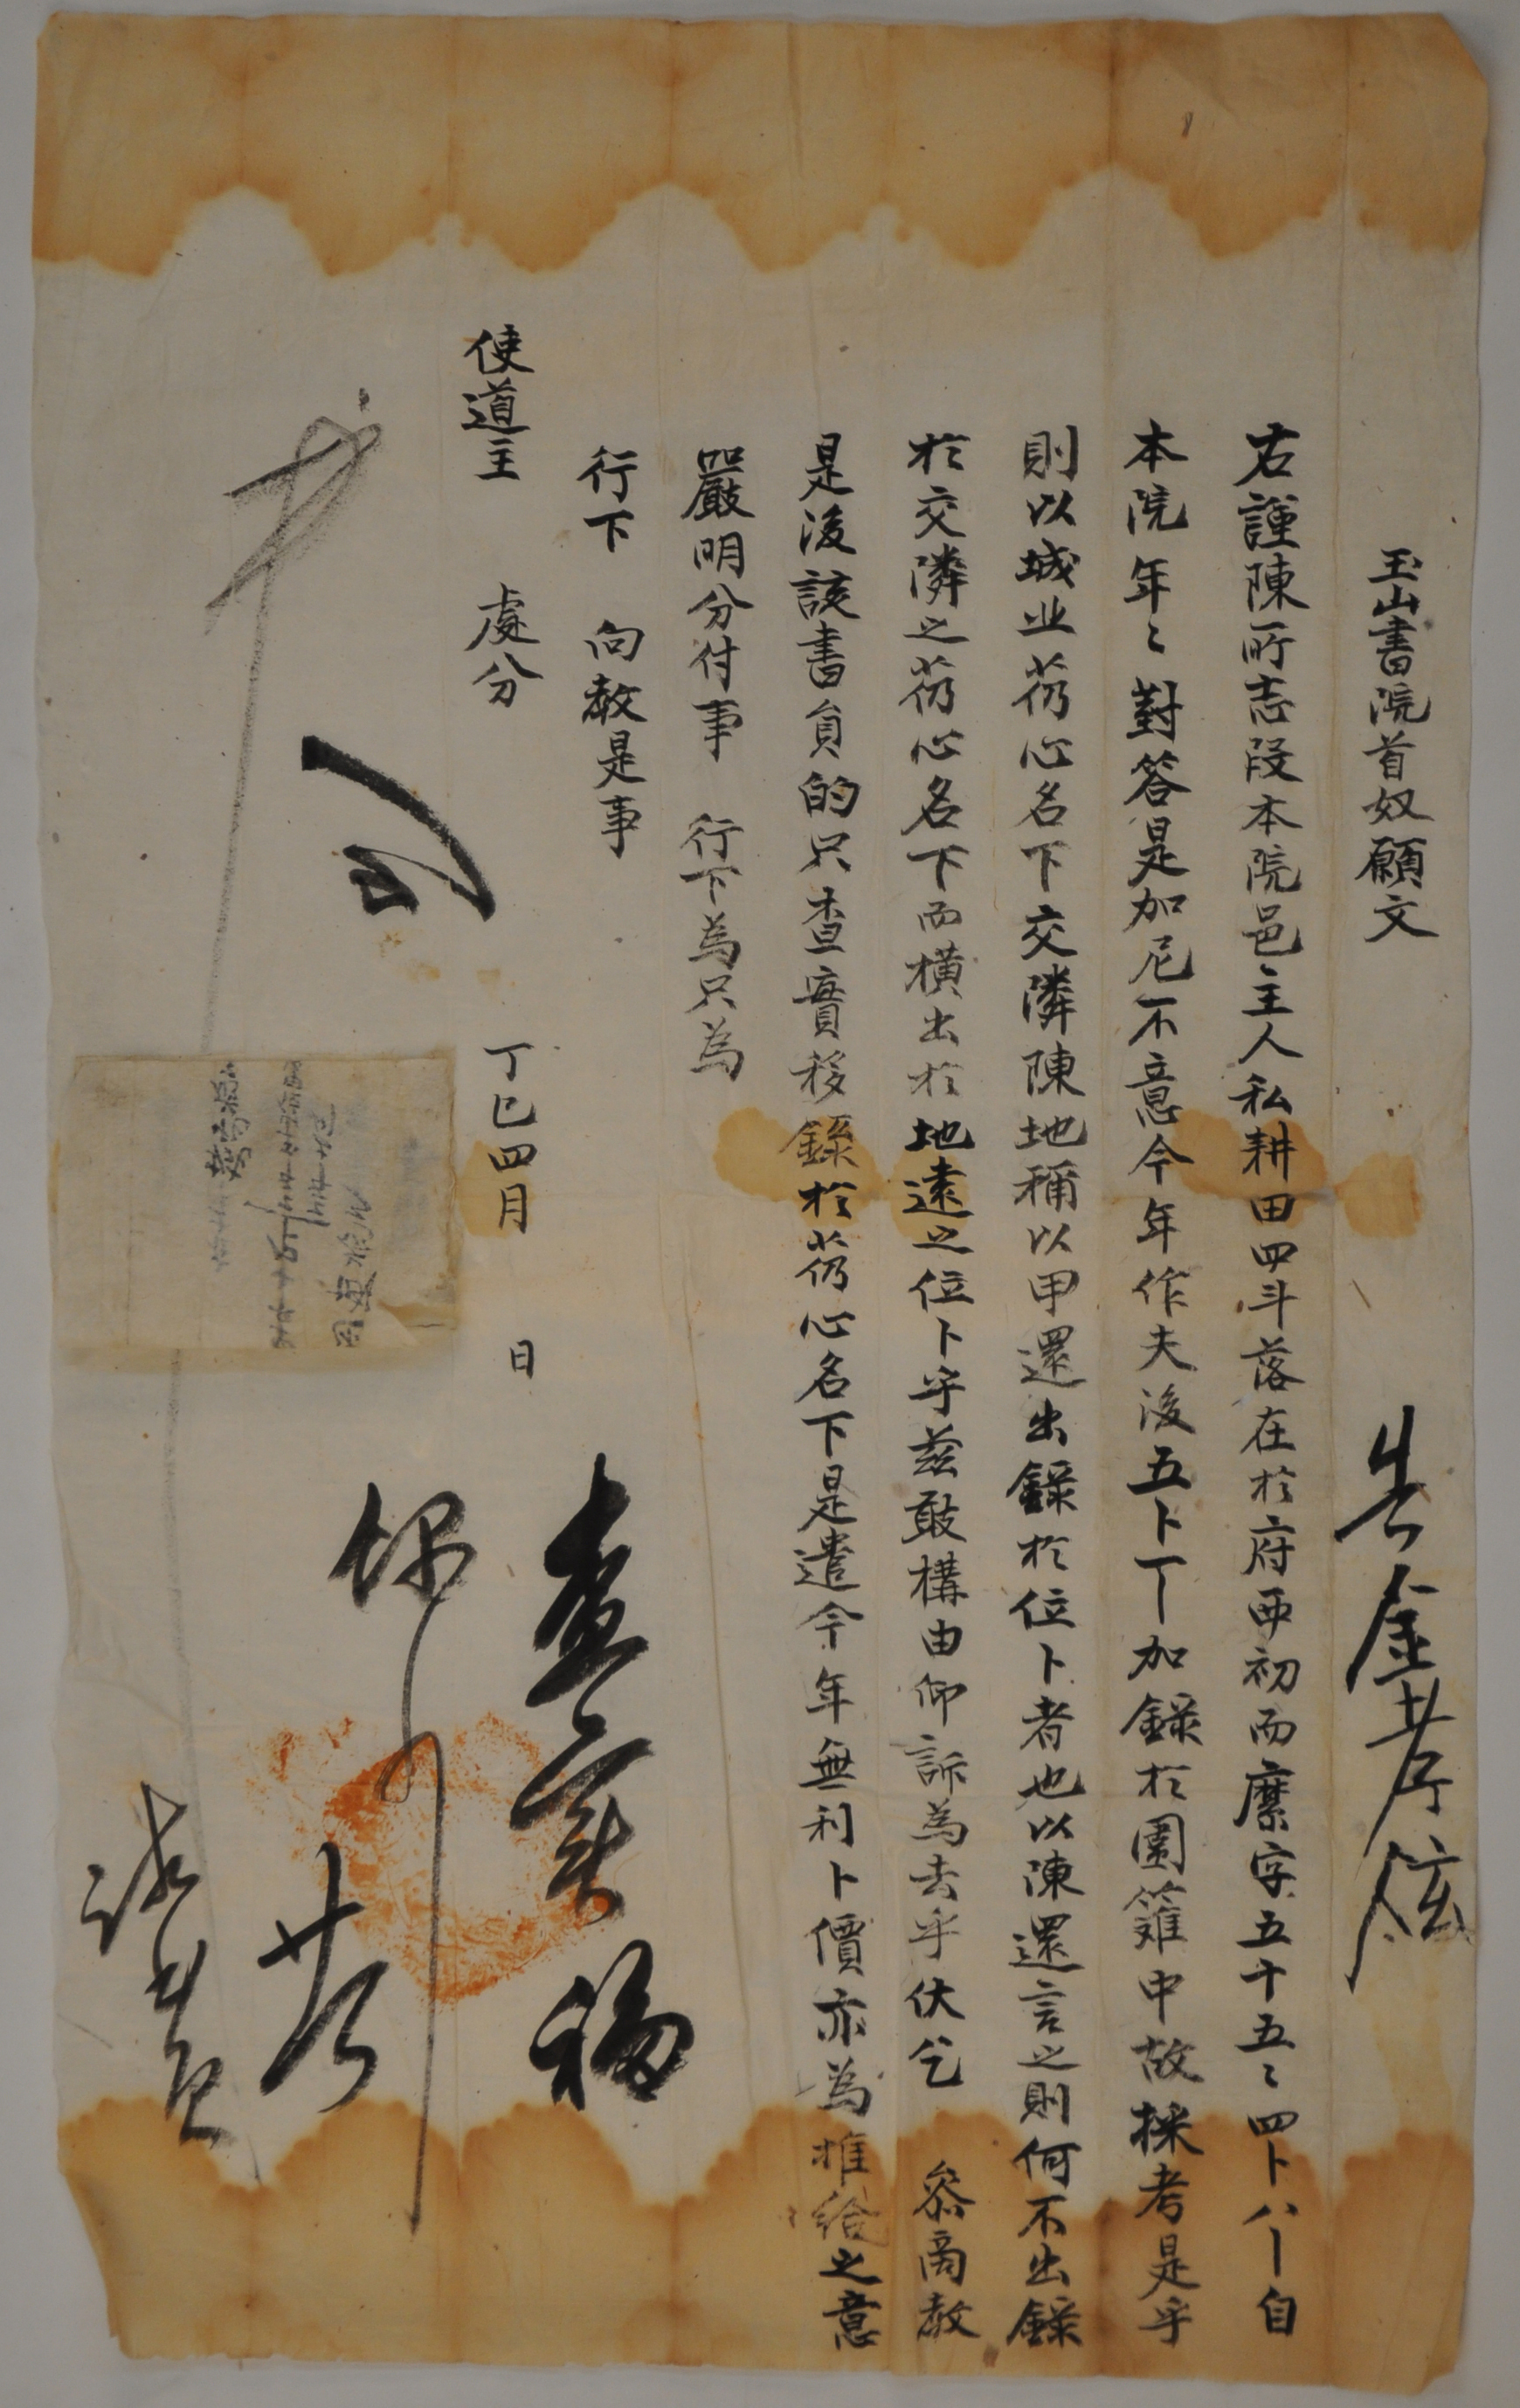 玉山書院首奴願文
右謹陳所志段本院邑主人私耕田四斗落在於府西初面縻字五十五〻四卜八丨自
本院年〻對答是加尼不意今年作夫後五卜丅丨加錄於園籬中故採考是乎
則以城业芿心名下交隣陳地稱以甲還出錄於位卜者也以陳還言之則何不出錄
於交隣之芿心名下而橫出於地遠之位卜乎茲敢構由仰訴為去乎伏乞 叅商敎
是後該書員的只查實移錄於芿心名下是遣今年無利卜價亦為推給之意
嚴明分付事 行下為只為
行下 向敎是事
使道主 處分
丁巳四月 日
查實移